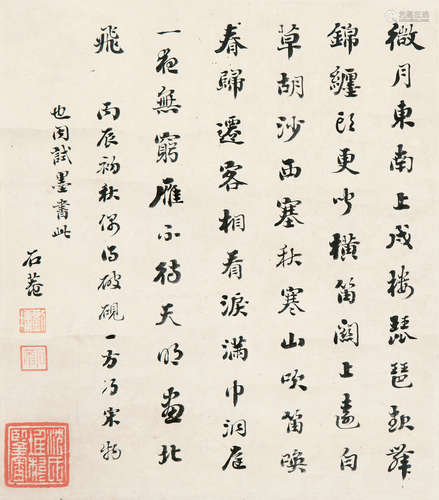 微月東南上戍樓琵琶起舞
錦纏頭更聞橫笛關山遠白
草胡沙西塞秋寒山吹笛喚
春歸遷客相看淚滿巾洞庭
一夜無窮雁不待天明盡北
飛
丙辰初秋偶得破硯一方乃宋物
也因試墨書此
石菴